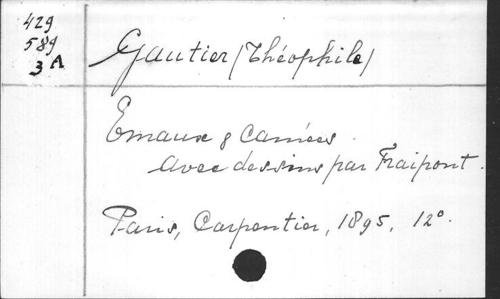 429
589
3 A
Gautier (Théophile)
Emaux & Camées.
Avec dessins par Fraipont.
Paris, Carpentier, 1895, 12°.